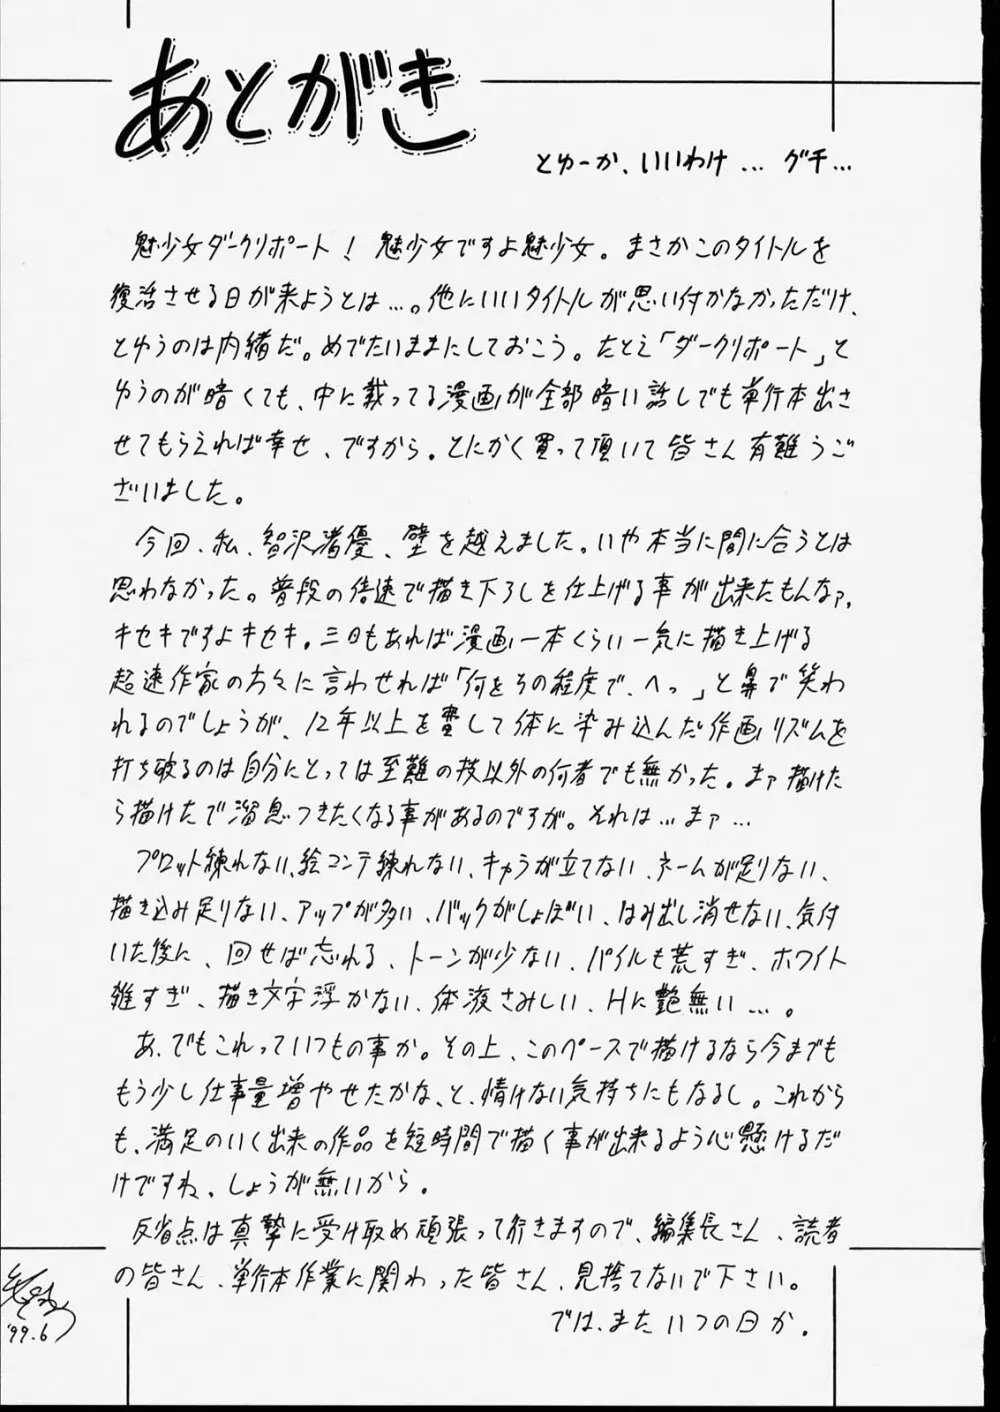 あとがき
とゆーか、いいわけ… グチ…
魅少女ダークリポート! 魅少女ですよ魅少女。まさかこのタイトルを
復活させる日が来ようとは…。他にいいタイトルが思い付かなかっただけ、
とゆうのは内緒だ。めでたいままにしておこう。たとえ「ダークリポート」と
ゆうのが暗くても、中に載ってる漫画が全部暗い話しでも単行本出さ
せてもらえれば幸せ、ですから。とにかく買って頂いて皆さん有難うご
ざいました。
今回、私、智沢渚優、壁を越えました。いや本当に間に合うとは
思わなかった。普段の倍速で描き下ろしを仕上げる事が出来たもんなァ。
キセキですよキセキ。三日もあれば漫画一本くらい一気に描き上げる
超速作家の方々に言わせれば「何をその程度で、へっ」と鼻で笑わ
れるのでしょうが、12年以上を費して体に染み込んだ作画リズムを
打ち破るのは自分にとっては至難の技以外の何者でも無かった。まァ描けた
ら描けたで溜息つきたくなる事があるのですが。それは…まァ…
プロット練れない、絵コンテ練れない、キャラが立てない、ネームが足りない、
描き込み足りない、アップが多い、バックがしょぼい、はみ出し消せない、気付
いた後に、回せば忘れる、トーンが少ない、パイルも荒すぎ、ホワイト
雑すぎ、描き文字浮かない、体液さみしい、Hに艶無い…。
あ、でもこれっていつもの事か。その上、このペースで描けるなら今までも
もう少し仕事量増やせたかな、と、情けない気持ちにもなるし。これから
も、満足のいく出来の作品を短時間で描く事が出来るよう心懸けるだ
けですね、しょうが無いから。
反省点は真摯に受け取め頑張って行きますので、編集長さん、読者
の皆さん、単行本作業に関わった皆さん、見捨てないで下さい。
では、またいつの日か。
'99.6